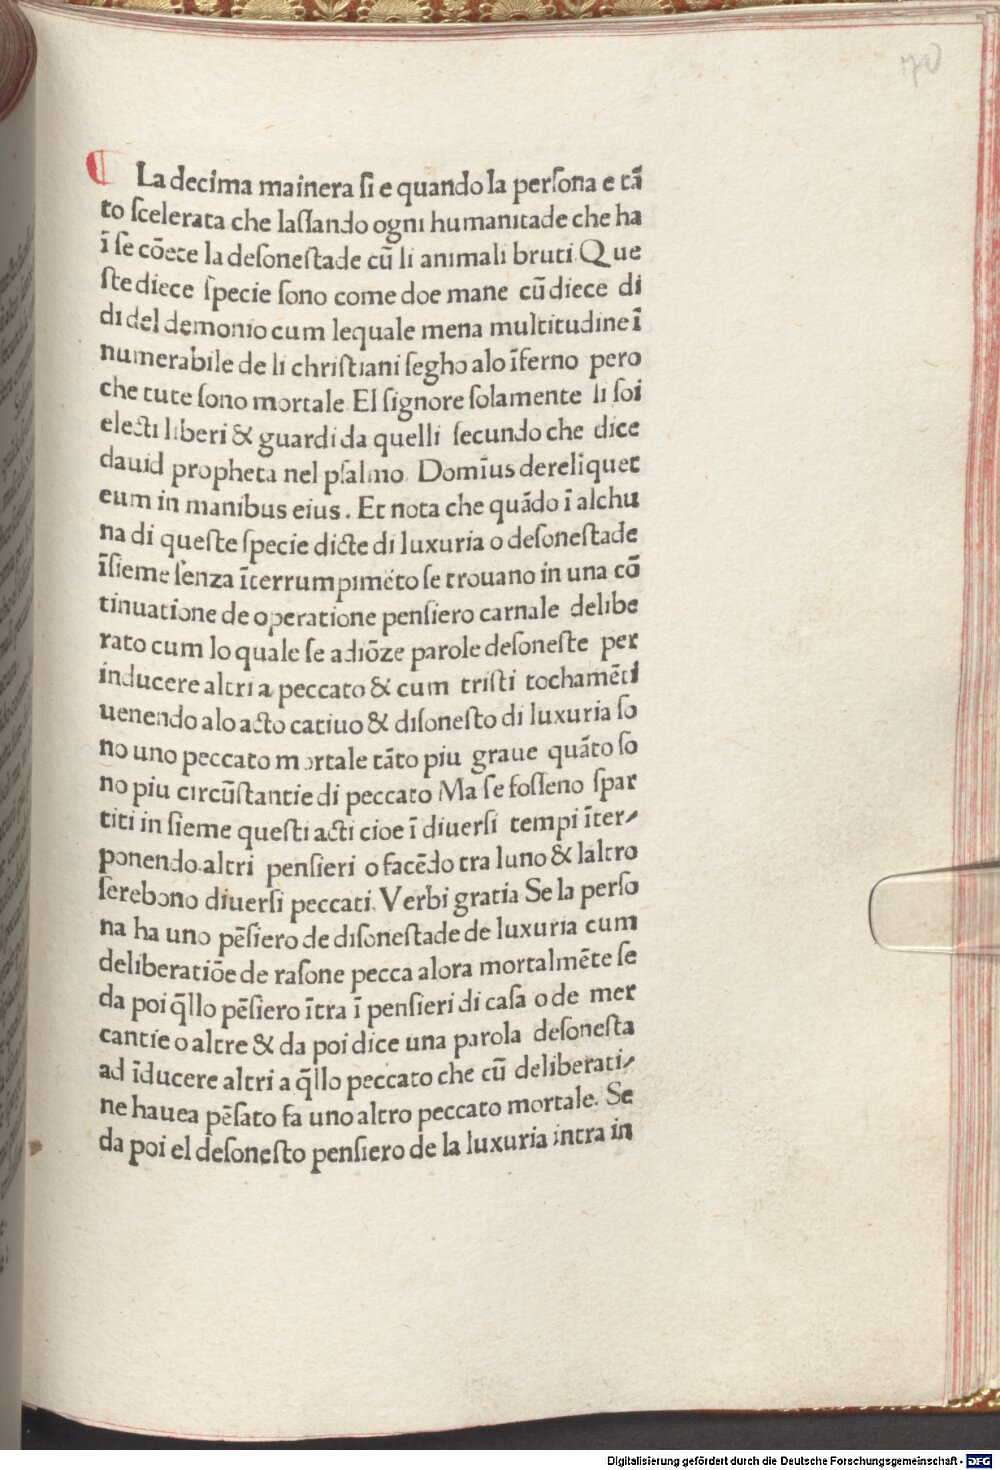 70
La decima mainera ſi e quando la perſona e tā
to ſcelerata che laſſando ogni humanitade che ha
ī ſe cōete la deſoneſtade cū li animali bruti. Que
ſte diece ſpecie ſono come doe mane cū diece di
di del demonio cum lequale mena multitudine ī
numerabile de li chriſtiani ſegho alo īferno pero
che tute ſono mortale El ſignore ſolamente li ſoi
electi liberi & guardi da quelli ſecundo che dice
dauid propheta nel pſalmo. Domīus derelīquet
eum in manibus eius. Et nota che quādo ī alchu
na di queſte ſpecie dicte di luxuria o deſoneſtade
īſieme ſenza īterrumpimēto ſe trouano in una cō
tinuatione de operatione penſiero carnale delibe
rato cum lo quale ſe adiōze parole deſoneſte per
inducere altri a peccato & cum triſti tochamēti
uenendo alo acto catiuo & diſoneſto di luxuria ſo
no uno peccato mortale tāto piu graue quāto ſo
no piu circūſtantie di peccato Ma ſe foſſeno ſpar
titi in ſieme queſti acti cioe ī diuerſi tempi īter⸗
ponendo altri penſieri o facēdo tra luno & laltro
ſerebono diuerſi peccati. Verbi gratia Se la perſo
na ha uno pēſiero de diſoneſtade de luxuria cum
deliberatiōe de raſone pecca alora mortalmēte ſe
da poi q̄llo pēſiero ītra ī penſieri di caſa o de mer
cantie o altre & da poi dice una parola deſoneſta
ad īducere altri a q̄llo peccato che cū deliberati⸗
ne hauea pēſato fa uno altro peccato mortale. Se
da poi el deſoneſto penſiero de la luxuria intra in
Digitalisierung gefördert durch die Deutsche Forschungsgemeinschaft - DFG